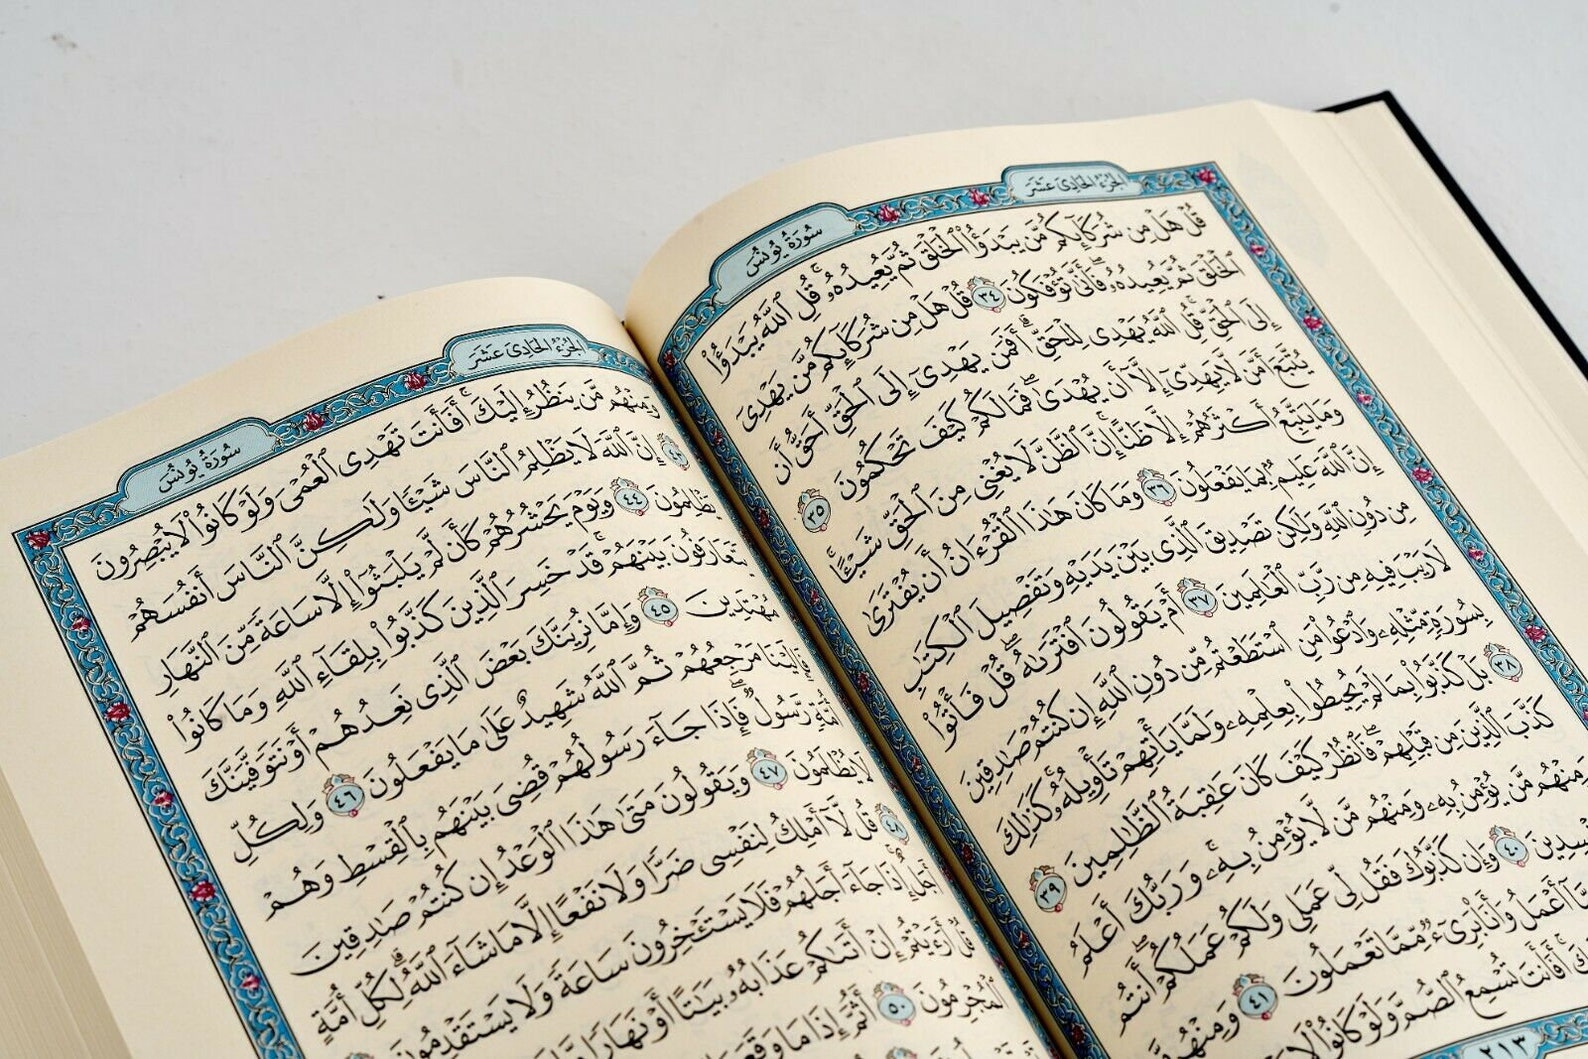 الجزء الحادي عشر
سورة يونس
قُلْ هَلْ مِن شُرَكَآئِكُم مَّن يَبْدَؤُا۟ ٱلْخَلْقَ ثُمَّ يُعِيدُهُۥ ۚ قُلِ ٱللَّهُ يَبْدَؤُا۟
ٱلْخَلْقَ ثُمَّ يُعِيدُهُۥ ۖ فَأَنَّىٰ تُؤْفَكُونَ ٣٤ قُلْ هَلْ مِن شُرَكَآئِكُم مَّن يَهْدِىٓ
إِلَى ٱلْحَقِّ ۚ قُلِ ٱللَّهُ يَهْدِى لِلْحَقِّ ۗ أَفَمَن يَهْدِىٓ إِلَى ٱلْحَقِّ أَحَقُّ أَن
يُتَّبَعَ أَمَّن لَّا يَهِدِّىٓ إِلَّآ أَن يُهْدَىٰ ۖ فَمَا لَكُمْ كَيْفَ تَحْكُمُونَ ٣٥
وَمَا يَتَّبِعُ أَكْثَرُهُمْ إِلَّا ظَنًّا ۚ إِنَّ ٱلظَّنَّ لَا يُغْنِى مِنَ ٱلْحَقِّ شَيْـًٔا ۚ
إِنَّ ٱللَّهَ عَلِيمٌۢ بِمَا يَفْعَلُونَ ٣٦ وَمَا كَانَ هَـٰذَا ٱلْقُرْءَانُ أَن يُفْتَرَىٰ
مِن دُونِ ٱللَّهِ وَلَـٰكِن تَصْدِيقَ ٱلَّذِى بَيْنَ يَدَيْهِ وَتَفْصِيلَ ٱلْكِتَـٰبِ
لَا رَيْبَ فِيهِ مِن رَّبِّ ٱلْعَـٰلَمِينَ ٣٧ أَمْ يَقُولُونَ ٱفْتَرَىٰهُ ۖ قُلْ فَأْتُوا۟
بِسُورَةٍ مِّثْلِهِۦ وَٱدْعُوا۟ مَنِ ٱسْتَطَعْتُم مِّن دُونِ ٱللَّهِ إِن كُنتُمْ صَـٰدِقِينَ
٣٨ بَلْ كَذَّبُوا۟ بِمَا لَمْ يُحِيطُوا۟ بِعِلْمِهِۦ وَلَمَّا يَأْتِهِمْ تَأْوِيلُهُۥ ۚ كَذَٰلِكَ
كَذَّبَ ٱلَّذِينَ مِن قَبْلِهِمْ ۖ فَٱنظُرْ كَيْفَ كَانَ عَـٰقِبَةُ ٱلظَّـٰلِمِينَ ٣٩
وَمِنْهُم مَّن يُؤْمِنُ بِهِۦ وَمِنْهُم مَّن لَّا يُؤْمِنُ بِهِۦ ۚ وَرَبُّكَ أَعْلَمُ
٤٠ وَإِن كَذَّبُوكَ فَقُل لِّى عَمَلِى وَلَكُمْ عَمَلُكُمْ ۖ أَنتُم
أَعْمَلُ وَأَنَا۠ بَرِىٓءٌ مِّمَّا تَعْمَلُونَ ٤١ وَمِنْهُم
أَفَأَنتَ تُسْمِعُ ٱلصُّمَّ وَلَوْ كَانُوا۟ لَا
٢١٣
الجزء الحادي عشر
سورة يونس
وَمِنْهُم مَّن يَنظُرُ إِلَيْكَ ۚ أَفَأَنتَ تَهْدِى ٱلْعُمْىَ وَلَوْ كَانُوا۟ لَا يُبْصِرُونَ
٤٣ إِنَّ ٱللَّهَ لَا يَظْلِمُ ٱلنَّاسَ شَيْـًٔا وَلَـٰكِنَّ ٱلنَّاسَ أَنفُسَهُمْ
يَظْلِمُونَ ٤٤ وَيَوْمَ يَحْشُرُهُمْ كَأَن لَّمْ يَلْبَثُوٓا۟ إِلَّا سَاعَةً مِّنَ ٱلنَّهَارِ
يَتَعَارَفُونَ بَيْنَهُمْ ۚ قَدْ خَسِرَ ٱلَّذِينَ كَذَّبُوا۟ بِلِقَآءِ ٱللَّهِ وَمَا كَانُوا۟
مُهْتَدِينَ ٤٥ وَإِمَّا نُرِيَنَّكَ بَعْضَ ٱلَّذِى نَعِدُهُمْ أَوْ نَتَوَفَّيَنَّكَ
فَإِلَيْنَا مَرْجِعُهُمْ ثُمَّ ٱللَّهُ شَهِيدٌ عَلَىٰ مَا يَفْعَلُونَ ٤٦ وَلِكُلِّ
أُمَّةٍ رَّسُولٌ ۖ فَإِذَا جَآءَ رَسُولُهُمْ قُضِىَ بَيْنَهُم بِٱلْقِسْطِ وَهُمْ
لَا يُظْلَمُونَ ٤٧ وَيَقُولُونَ مَتَىٰ هَـٰذَا ٱلْوَعْدُ إِن كُنتُمْ صَـٰدِقِينَ
٤٨ قُل لَّآ أَمْلِكُ لِنَفْسِى ضَرًّا وَلَا نَفْعًا إِلَّا مَا شَآءَ ٱللَّهُ ۗ لِكُلِّ أُمَّةٍ
أَجَلٌ ۚ إِذَا جَآءَ أَجَلُهُمْ فَلَا يَسْتَـْٔخِرُونَ سَاعَةً ۖ وَلَا يَسْتَقْدِمُونَ
قُلْ أَرَءَيْتُمْ إِنْ أَتَىٰكُمْ عَذَابُهُۥ بَيَـٰتًا أَوْ نَهَارًا
ٱلْمُجْرِمُونَ ٥٠ أَثُمَّ إِذَا مَا وَقَعَ